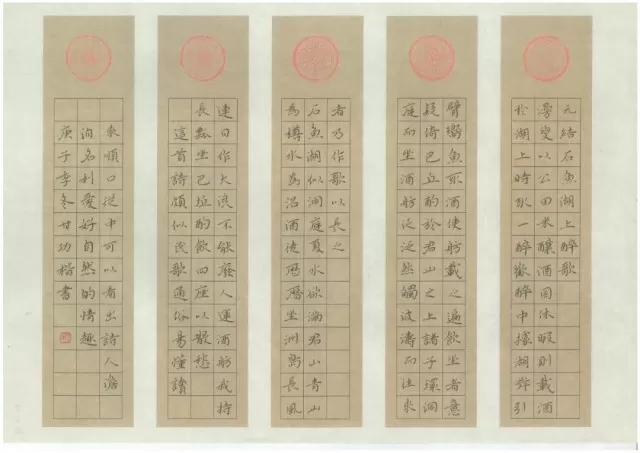 元結石魚湖上醉歌
漫叟以公田米釀酒因休暇則載酒
於湖上時取一醉歡醉中據湖岸引
臂嚮魚取酒使舫載之遍飲坐者意
疑倚巴丘酌於君山之上諸子環洞
庭而坐酒舫泛泛然觸波濤而往來
者乃作歌以長之
石魚湖似洞庭夏水欲滿君山青山
為樽水為沼酒徒歷歷坐洲島長風
連日作大浪不能廢人運酒舫我持
長瓢坐巴丘酌飲四座以散愁
這首詩頗似民歌通俗易懂讀
來順口從中可以看出詩人澹
泊名利愛好自然的情趣
庚子季冬甘功楷書